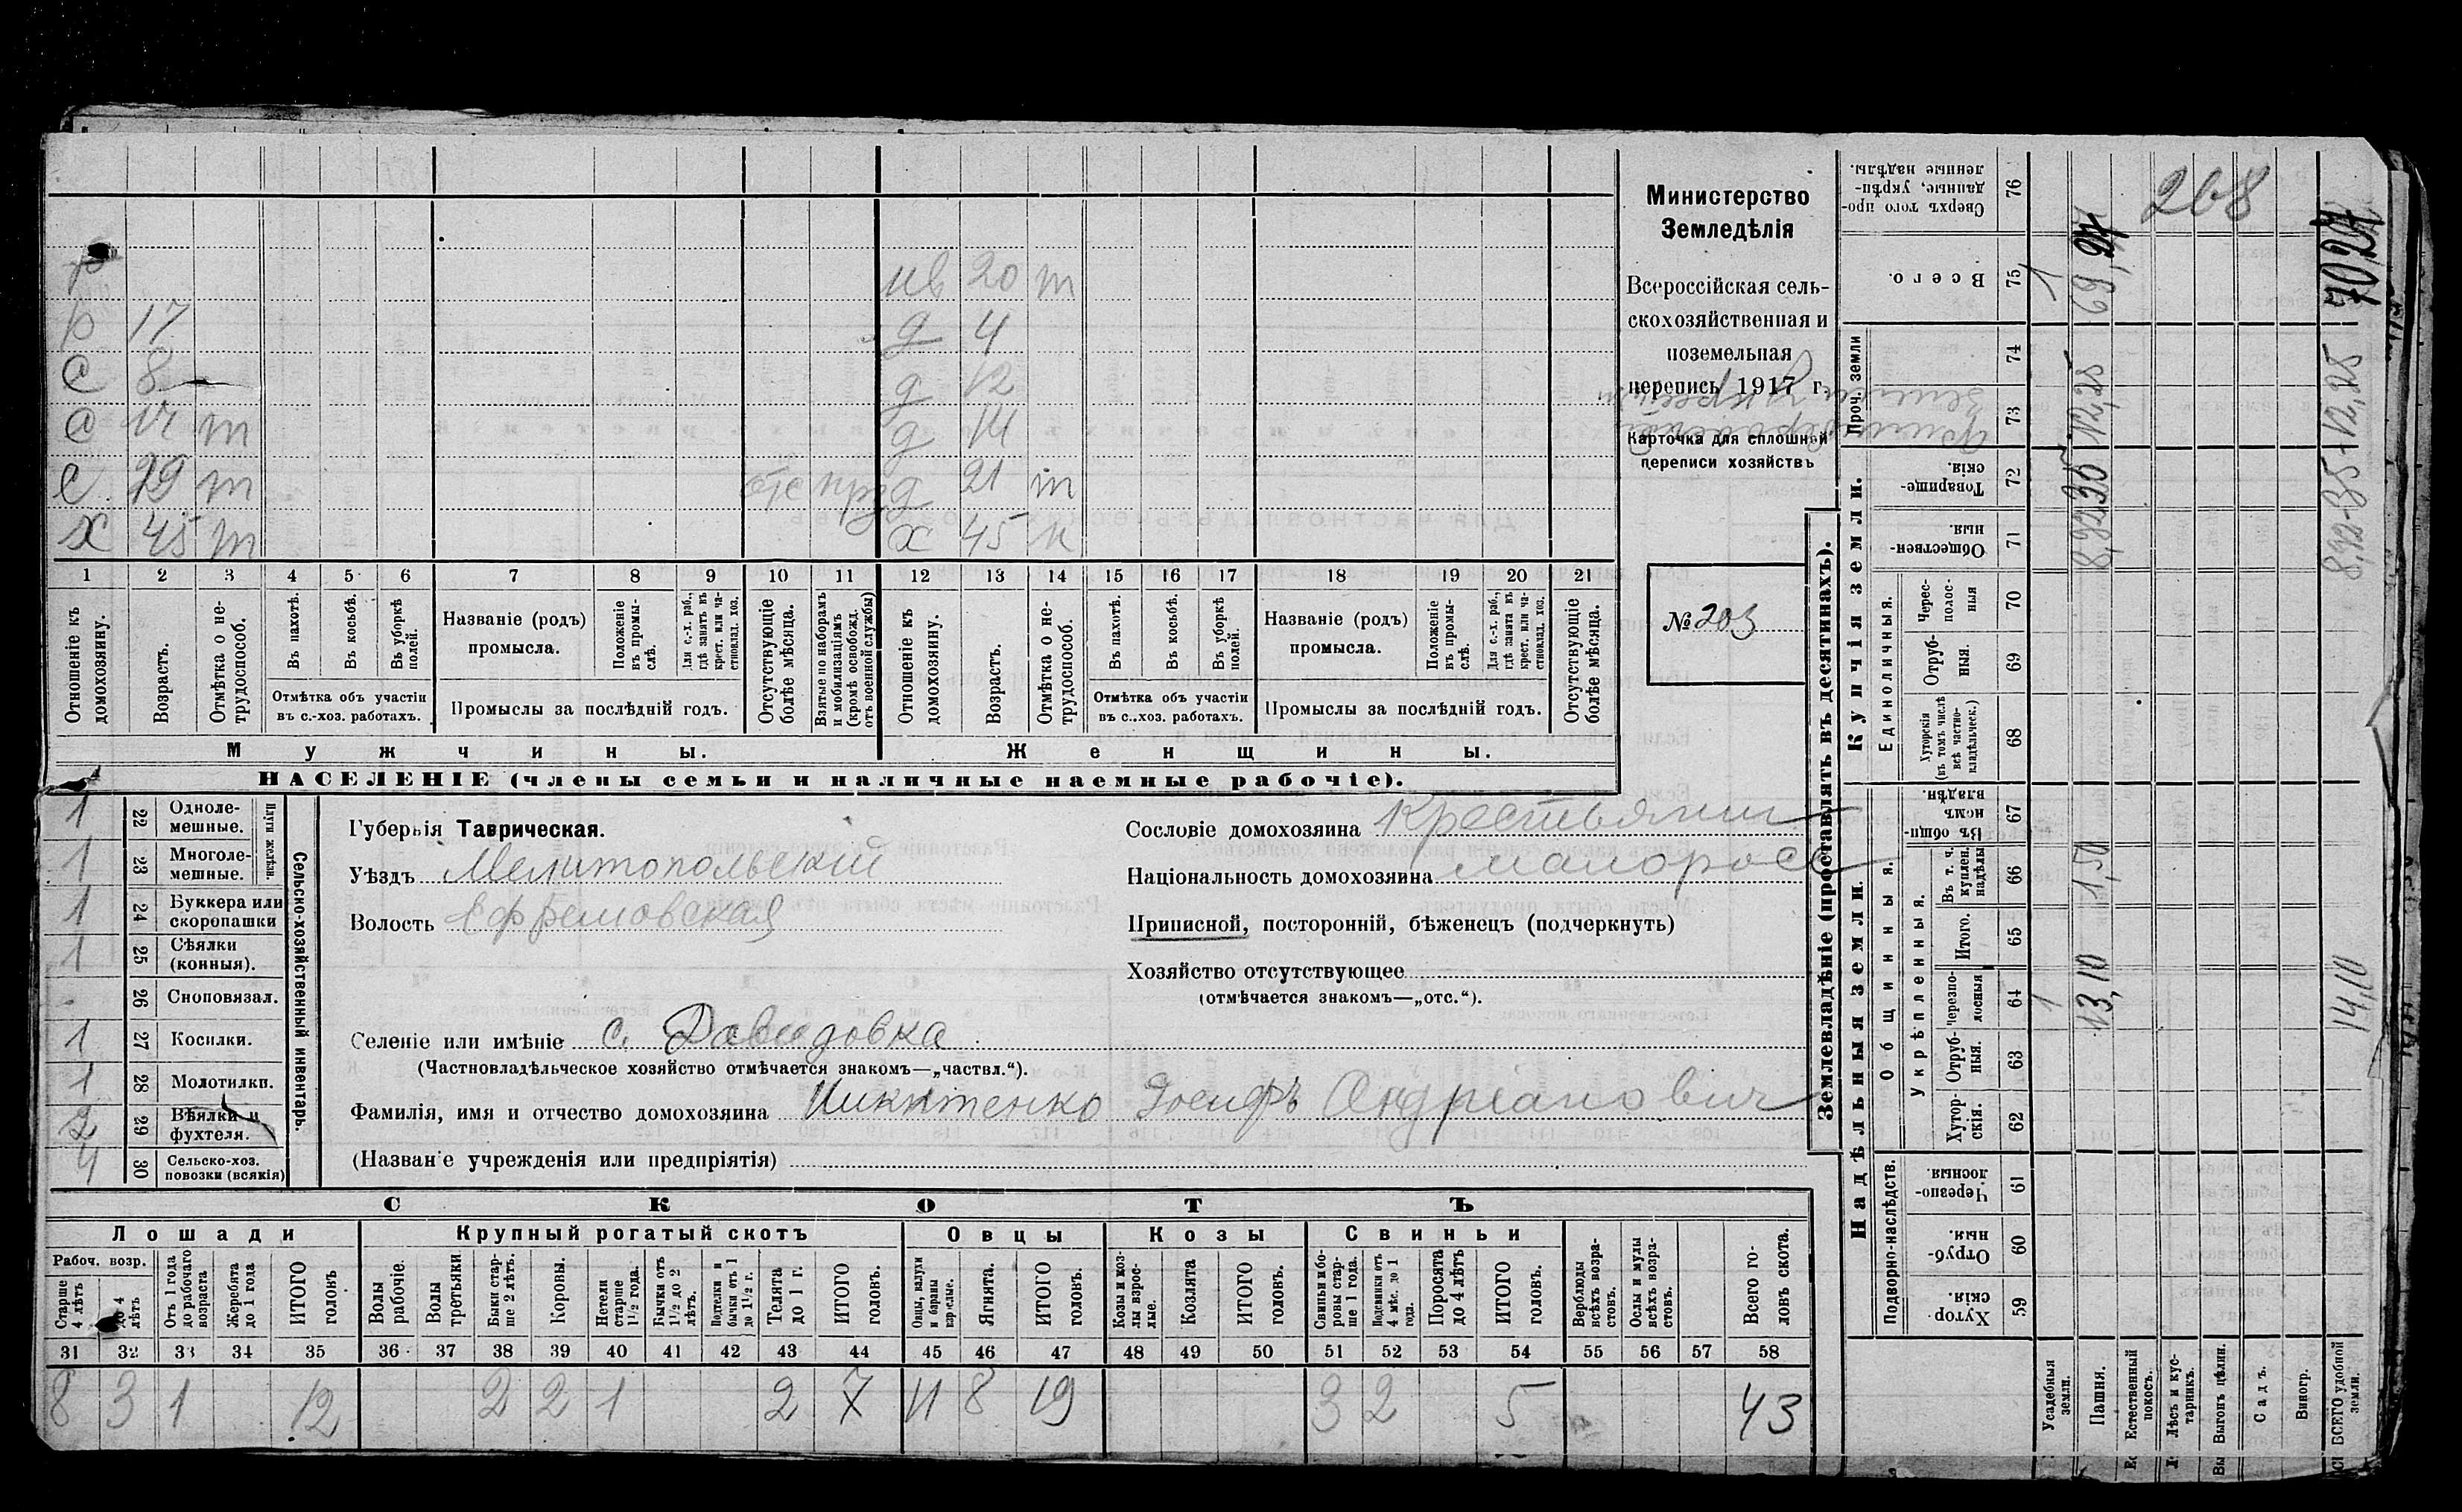 нв 20 т
р
р 17 д 4
с 8 д 12
с 14 т д 14
с 19 т д 21 т
х 45 т х 45 н
1 2 3 4 5 6 7 8 9 10 11 12 13 14 15 16 17 18 19 20 21
Отношеніе къ домохозяину.
Возрастъ.
Отмѣтка о не-трудоспособ.
Въ пахотѣ.
Въ косьбѣ.
Въ уборкѣ полей.
Отмѣтка объ участіи въ с.-хоз. работахъ.
Названіе (родъ) промысла.
Положеніе въ промы-слѣ.
Для с.-х. раб., гдѣ занятъ въ крест. или ча-стновлад. хоз.
Промыслы за послѣдній годъ.
Отсутствующіе болѣе мѣсяца.
Взятые по наборамъ и мобилизаціямъ (кромѣ освобожд. отъ военной службы)
Отношеніе къ домохозяину.
Возрастъ.
Отмѣтка о не-трудоспособ.
Въ пахотѣ.
Въ косьбѣ.
Въ уборкѣ полей.
Отмѣтка объ участіи въ с.-хоз. работахъ.
Названіе (родъ) промысла.
Положеніе въ промы-слѣ.
Для с.-х. раб., гдѣ занята въ крест. или ча-стновлад. хоз.
Промыслы за послѣдній годъ.
Отсутствующіе болѣе мѣсяца.
Мужчины. Женщины.
НАСЕЛЕНІЕ (члены семьи и наличные наемные рабочіе).
Министерство
Земледѣлія
Всероссійская сель-
скохозяйственная и
поземельная
перепись 1917 г.
Карточка для сплошной
переписи хозяйствъ
№ 203
1 22 Одноле-мешные.
1 23 Многоле-мешные.
Плуги желѣзн.
1 24 Буккера или скоропашки
1 25 Сѣялки (конныя).
- 26 Сноповязал.
1 27 Косилки.
1 28 Молотилки.
2 29 Вѣялки и фухтеля.
4 30 Сельско-хоз. повозки (всякія)
Сельско-хозяйственный инвентарь.
Губернія Таврическая.
Уѣздъ Мелитопольскій
Волость Ефремовская
Сословіе домохозяина Крестьянин
Національность домохозяина малоросс
Приписной, посторонній, бѣженецъ (подчеркнуть)
Хозяйство отсутствующее
(отмѣчается знакомъ—„отс.“).
Селеніе или имѣніе с. Давидовка
(Частновладѣльческое хозяйство отмѣчается знакомъ—„частвл.“).
Фамилія, имя и отчество домохозяина Никитенко Іосифъ Андріановичъ
(Названіе учрежденія или предпріятія)
СКОТЪ
Лошади Крупный рогатый скотъ Овцы Козы Свиньи
Рабоч. возр.
Старше 4 лѣтъ
до 4 лѣтъ
Отъ 1 года до рабочаго возраста
Жеребята до 1 года
ИТОГО головъ
Волы рабочіе.
Волы третьяки
Быки стар-ше 2 лѣтъ.
Коровы.
Нетели старше 1½ года.
Бычки отъ 1½ до 2 лѣтъ.
Подтелки и бычки отъ 1 до 1½ г.
Телята до 1 г.
ИТОГО головъ.
Овцы, валухи и бараны взрослые.
Ягнята.
ИТОГО головъ.
Козы и коз-лы взрос-лые.
Козлята
ИТОГО головъ.
Свиньи и бо-ровы стар-ше 1 года.
Подсвинки отъ 4 мѣс. до 1 года.
Поросята до 4 лѣтъ
ИТОГО головъ.
Верблюды всѣхъ возра-стовъ.
Ослы и мулы всѣхъ возра-стовъ.
Всего го-ловъ скота.
31 32 33 34 35 36 37 38 39 40 41 42 43 44 45 46 47 48 49 50 51 52 53 54 55 56 57 58
8 3 1 12 2 2 1 2 7 11 8 19 3 2 5 43
Землевладѣніе (проставлять въ десятинахъ).
Надѣльныя земли. Купчія земли. Проч. земли
Подворно-наслѣдств.
Общинныя.
Укрѣпленныя.
Единоличныя.
Хутор-скія. 59
Отруб-ныя. 60
Черезпо-лосныя 61
Хутор-скія. 62
Отруб-ныя. 63
Черезпо-лосныя 64
Итого. 65
Въ т. ч. куплен. надѣлы 66
Въ общи-номъ владѣн. 67
Хуторскія (въ томъ числѣ всѣ частно-владѣльческ.) 68
Отруб-ныя. 69
Черес-полос-ныя 70
Обществен-ныя 71
Товарище-скія. 72
73 74
Всего. 75
Сверхъ того про-данные, укрѣп-ленные надѣлы. 76
Усадебныя земли. 1 1
Пашня. 13,10 1,50 12,25
Естественный покосъ.
Лѣсъ и кус-тарникъ. 268
Выгонъ цѣлин.
Садъ.
Виногр.
ВСЕГО удобной земли. 14,10